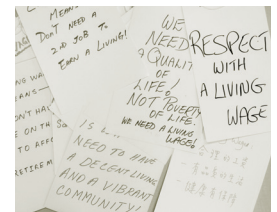 MEAN
DON'T NEED A
2ND JOB TO
EARN A LIVING!
WE
NEED
A QUALITY
OF
LIFE!
NOT POVERTY
OF LIFE.
WE NEED A LIVING
WAGE!
RESPECT
WITH
A LIVING
WAGE
NG WA
EANS
ON'T HA
E ON TH
TO KEEP
RETIREM
IS
NEED TO HAVE
A DECENT LIVING
AND A VIBRANT
COMMUNITY!